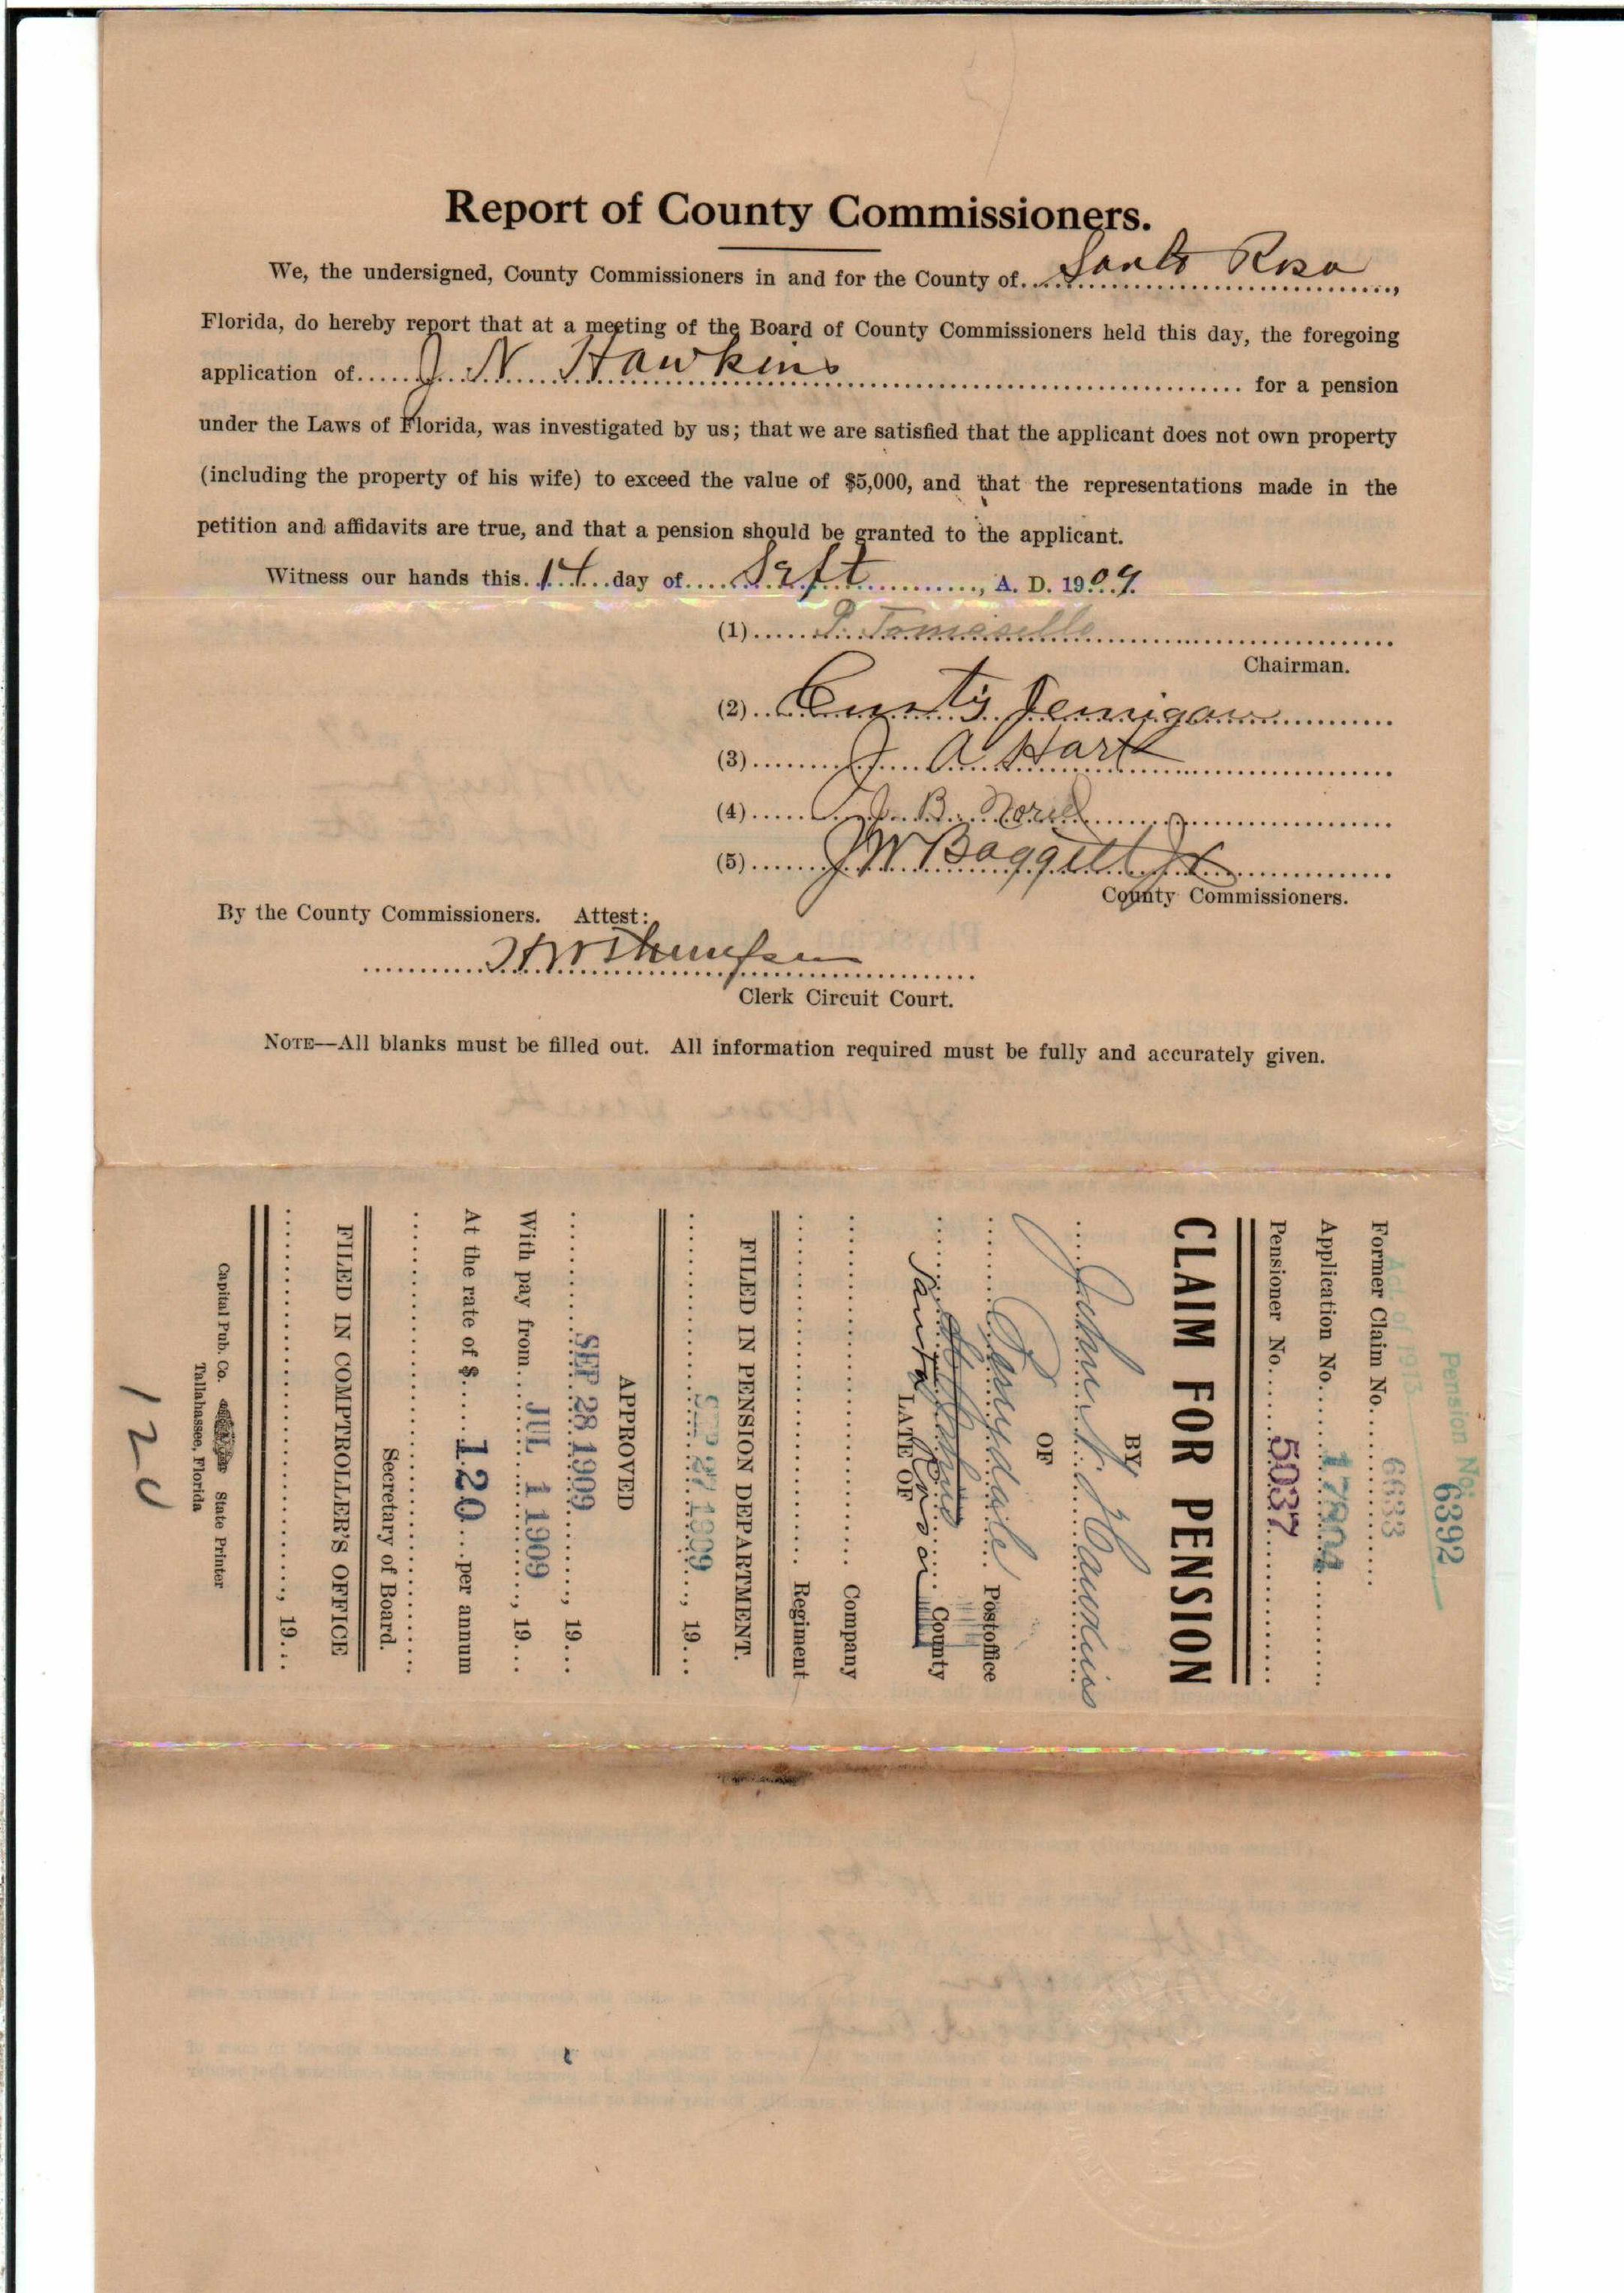 Report of County Commissioners.
We, the undersigned, County Commissioners in and for the County of Santa Rosa,
Florida, do hereby report that at a meeting of the Board of County Commissioners held this day, the foregoing
application of J N Hawkins for a pension
under the Laws of Florida, was investigated by us; that we are satisfied that the applicant does not own property
(including the property of his wife) to exceed the value of $5,000, and that the representations made in the
petition and affidavits are true, and that a pension should be granted to the applicant.
Witness our hands this 14 day of Sept, A. D. 1909.
(1) P. Tomasello
Chairman.
(2) Curtis Jernigan
(3) J. A. Hart
(4) J. B.
(5) J W Baggett Jr
County Commissioners.
By the County Commissioners. Attest:
Clerk Circuit Court.
NOTE—All blanks must be filled out. All information required must be fully and accurately given.
Pension No. 6392
Act of 1913
Former Claim No. 6633
Application No. 17804
Pensioner No. 5037
CLAIM FOR PENSION
BY
John N. Hawkins
OF
Postoffice
Santa Rosa County
LATE OF
Company
Regiment
FILED IN PENSION DEPARTMENT.
SEP 27 1909, 19
APPROVED
SEP 28 1909, 19
With pay from JUL 1 1909, 19
At the rate of $ 120 per annum
Secretary of Board.
FILED IN COMPTROLLER'S OFFICE
, 19
Capital Pub. Co. State Printer
Tallahassee, Florida
120